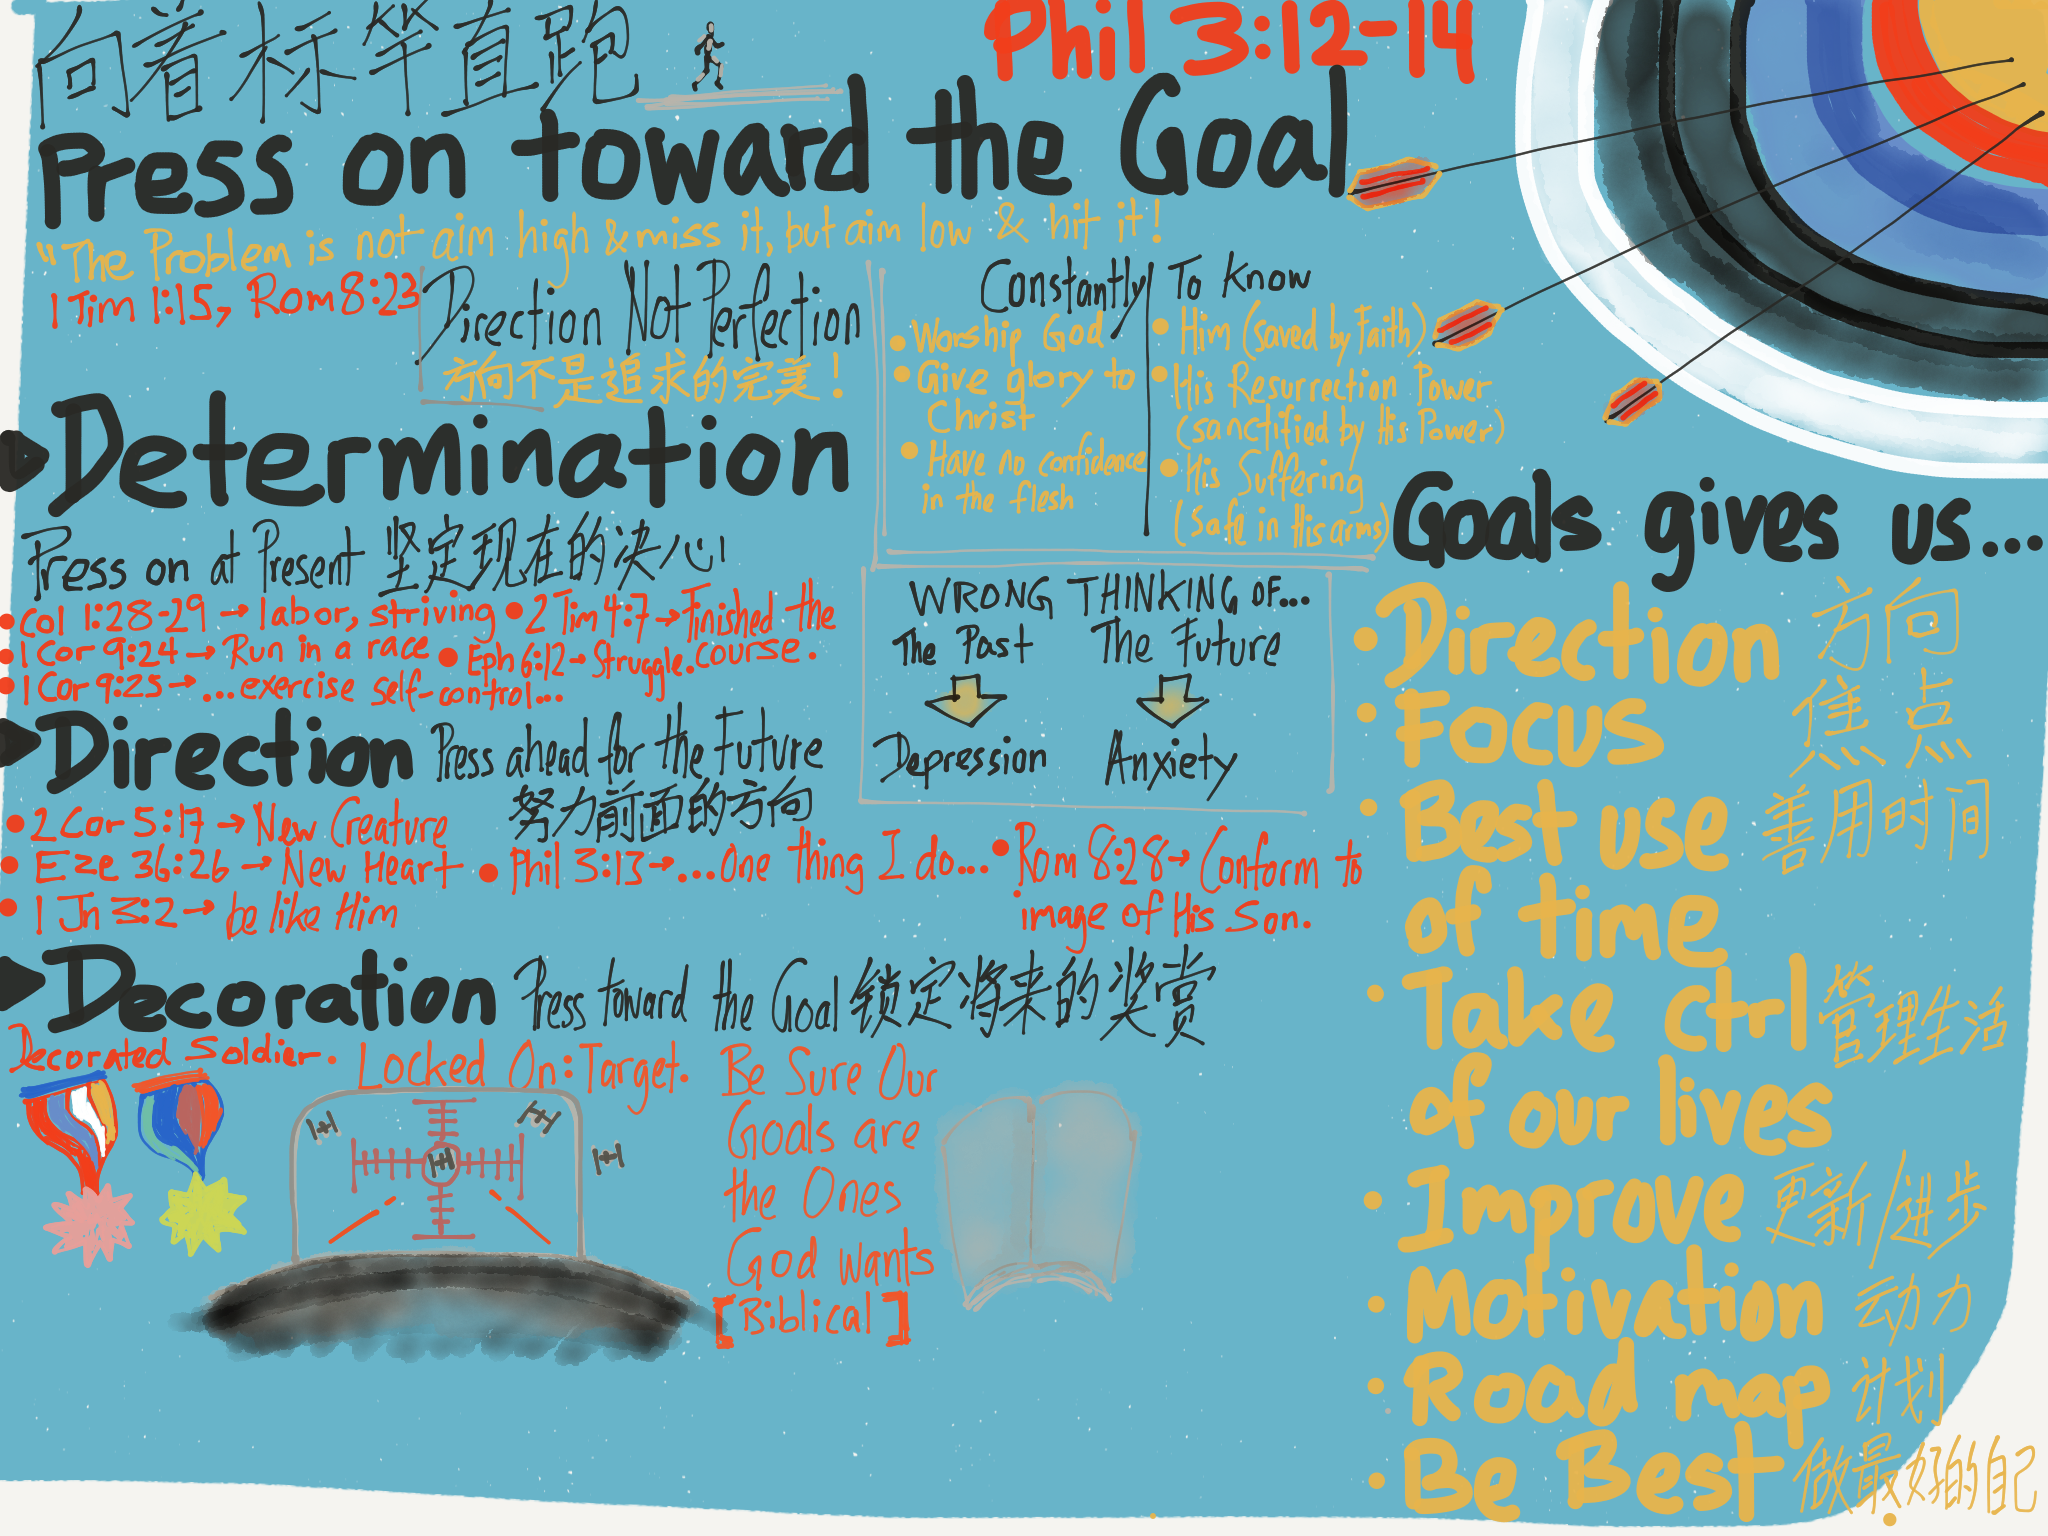 向着标竿直跑
Phil 3:12-14
Press on toward the Goal
"The Problem is not aim high & miss it, but aim low & hit it!
1 Tim 1:15, Rom 8:23
Direction Not Perfection
方向不是追求的完美！
Constantly
• Worship God
• Give glory to
Christ
• Have no confidence
in the flesh
To Know
• Him (saved by Faith)
• His Resurrection Power
(sanctified by His Power)
• His Suffering
(safe in His arms)
Determination
Press on at Present 坚定现在的决心
• Col 1:28-29 → labor, striving
• 1 Cor 9:24 → Run in a race
• 1 Cor 9:25 → ...exercise self-control...
• 2 Tim 4:7 → Finished the
course.
• Eph 6:12 → Struggle.
WRONG THINKING OF...
The Past
Depression
The Future
Anxiety
Direction Press ahead for the Future
努力前面的方向
• 2 Cor 5:17 → New Creature
• Eze 36:26 → New Heart
• 1 Jn 3:2 → be like Him
• Phil 3:13 → ...One thing I do...
• Rom 8:28 → Conform to
image of His Son.
Decoration Press toward the Goal 锁定将来的奖赏
Decorated Soldier.
Locked On: Target.
Be Sure Our
Goals are
the Ones
God wants
[Biblical]
Goals gives us...
• Direction 方向
• Focus 焦点
• Best use 善用时间
of time
• Take ctrl 管理生活
of our lives
• Improve 更新/进步
• Motivation 动力
• Road map 计划
• Be Best 做最好的自己